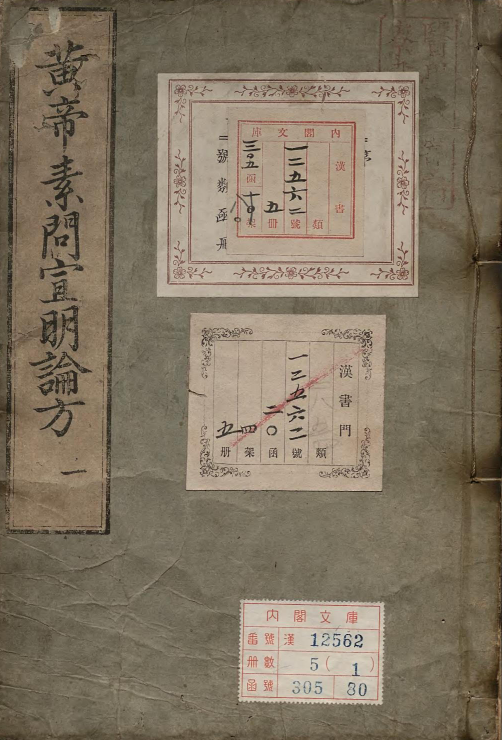 黄帝素問宣明論方 一
内閣文庫
漢書
類
一二五六二號
五冊
三〇五函
漢書門
類
一二五六二號
二〇函
四架
五冊
内閣文庫
番號 漢 12562
冊數 5(1)
函號 305 80